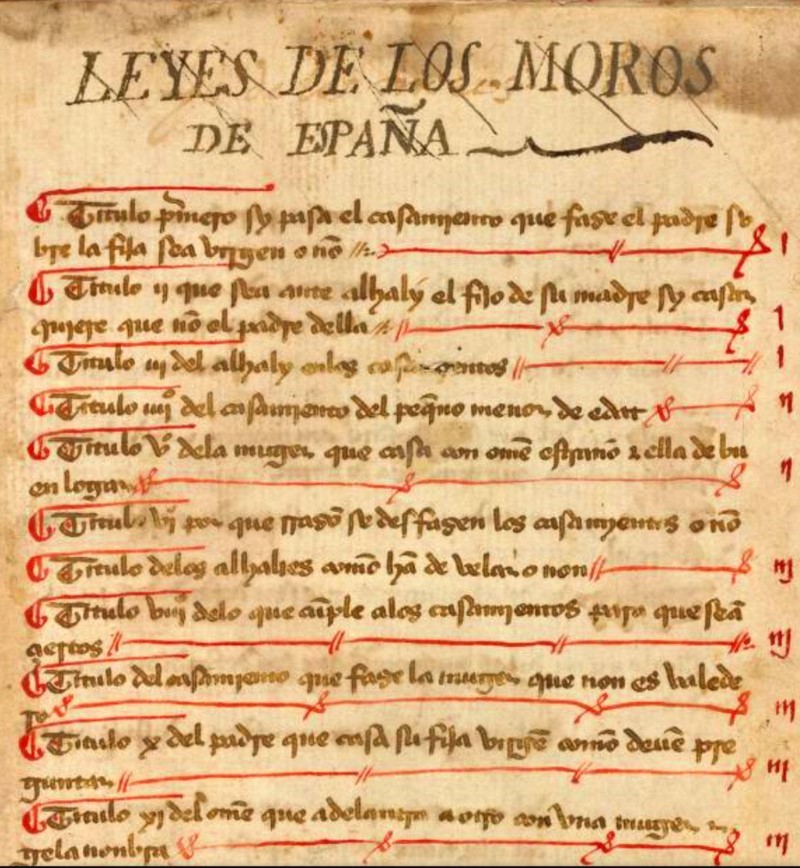 LEYES DE LOS MOROS
DE EPAÑA
Titulo p̃mero sy pasa el casamiento que faze el padre so
bre la fija sea virgen o nõ I
Titulo ii que sea ante alhaly el fijo de su madre sy casar
quiere que nõ el padre della I
Titulo iii del alhaly en los I
Titulo iiiiº del casamiento del peq̃no menor de edat II
Titulo vº dela muger que casa con omẽ estraño τ ella de bu
en logar II
Titulo vi por que rrazõ se desfazen los casamyentos o nõ
Titulo delos alhalies comõ hã de velar o non III
Titulo viiiº delo que cũple alos casamientos para que seã
çiertos III
Titulo del casamiento que faze la muger que non es valede
ro III
Titulo x del padre que casa su fija virgẽ comõ deuẽ pre
guntar III
Titulo xi del omẽ que adelantra a otro con vna muger τ
gela nonbra III